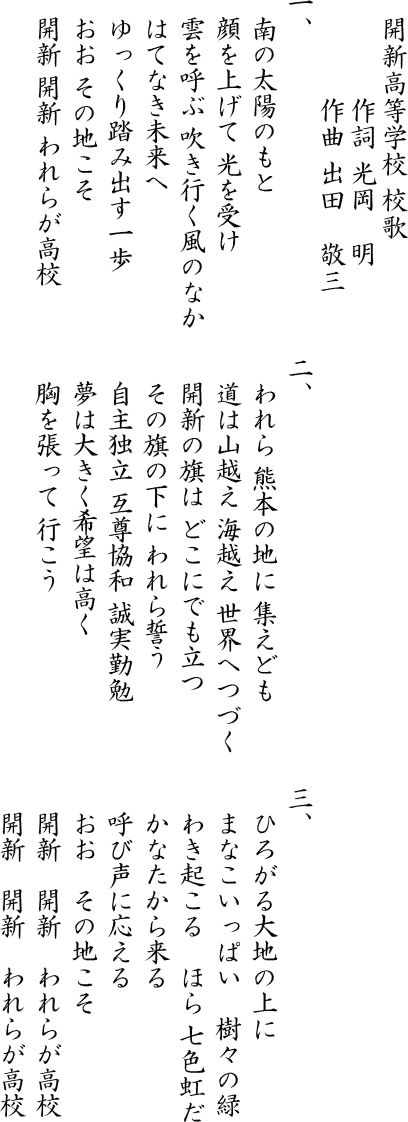 開新高等学校 校歌
作詞 光岡 明
作曲 出田 敬三
一、
南の太陽のもと
顔を上げて 光を受け
雲を呼ぶ 吹き行く風のなか
はてなき未来へ
ゆっくり踏み出す一歩
おお その地こそ
開新 開新 われらが高校
二、
われら 熊本の地に 集えども
道は山越え 海越え 世界へつづく
開新の旗は どこにでも立つ
その旗の下に われら誓う
自主独立 互尊協和 誠実勤勉
夢は大きく希望は高く
胸を張って 行こう
三、
ひろがる大地の上に
まなこいっぱい 樹々の緑
わき起こる ほら 七色虹だ
かなたから来る
呼び声に応える
おお その地こそ
開新 開新 われらが高校
開新 開新 われらが高校